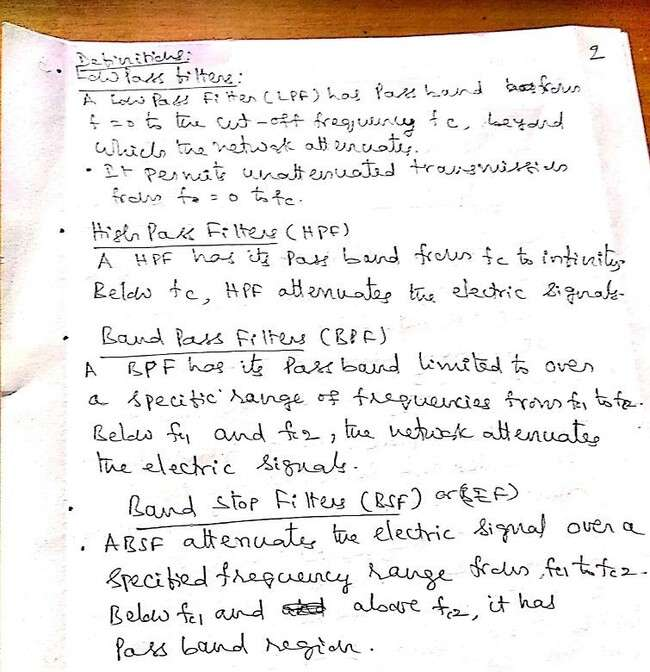 2
Definitions:
Low Pass Filters:
A Low Pass Filter (LPF) has Pass band from
f = 0 to the cut-off frequency fc, beyond
which the network attenuates.
• It permits unattenuated transmission
from f = 0 to fc.
• High Pass Filters (HPF)
A HPF has its Pass band from fc to infinity.
Below fc, HPF attenuates the electric signals.
• Band Pass Filters (BPF)
A BPF has its Pass band limited to over
a specific range of frequencies from fc1 to fc2.
Below fc1 and fc2, the network attenuates
the electric signals.
• Band Stop Filters (BSF) or (BEF)
• A BSF attenuates the electric signal over a
specified frequency range from fc1 to fc2.
Below fc1 and above fc2, it has
Pass band region.